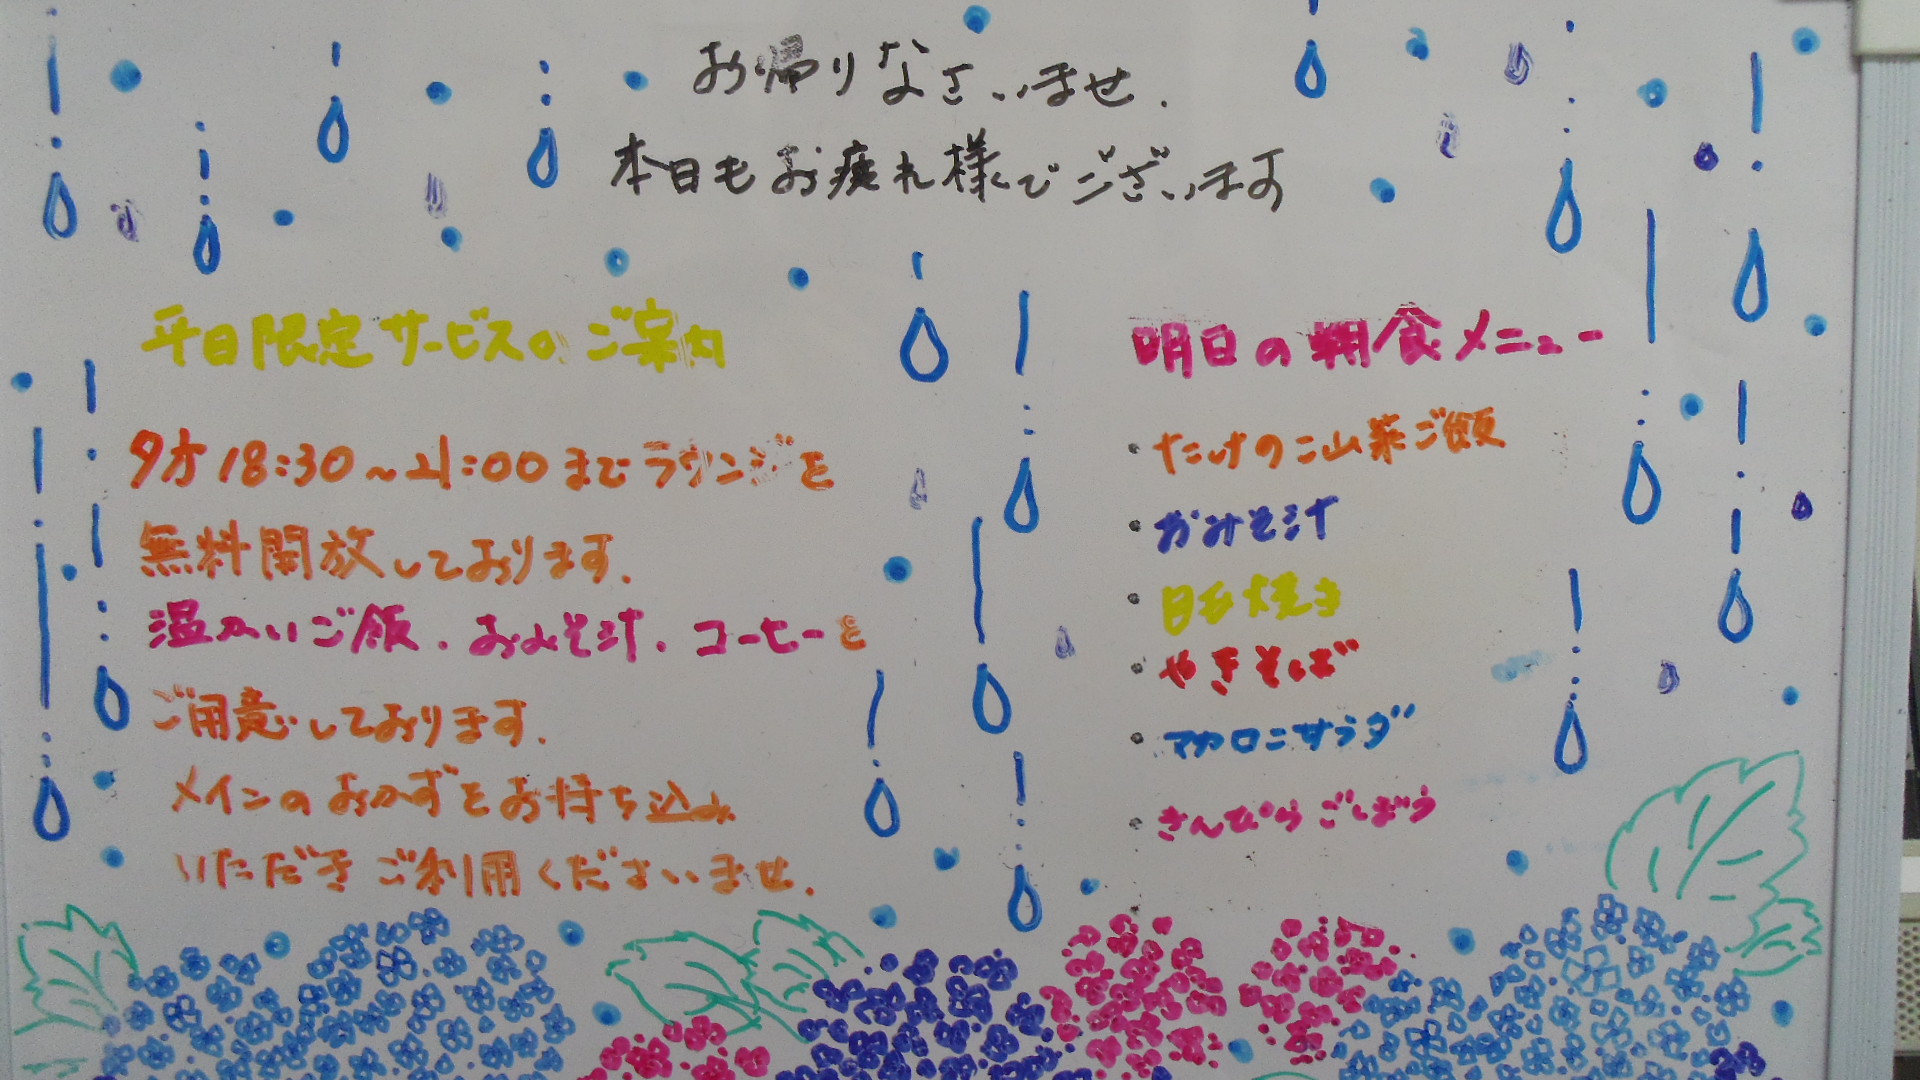 お帰りなさいませ.
本日もお疲れ様でございます
平日限定サービスのご案内
夕方18:30~21:00までラウンジを
無料開放しております.
温かいご飯.おみそ汁.コーヒーを
ご用意しております.
メインのおかずをお持ち込み
いただきご利用くださいませ.
明日の朝食メニュー
・たけのこ山菜ご飯
・おみそ汁
・焼き
・やきそば
・マカロニサラダ
・きんぴらごぼう